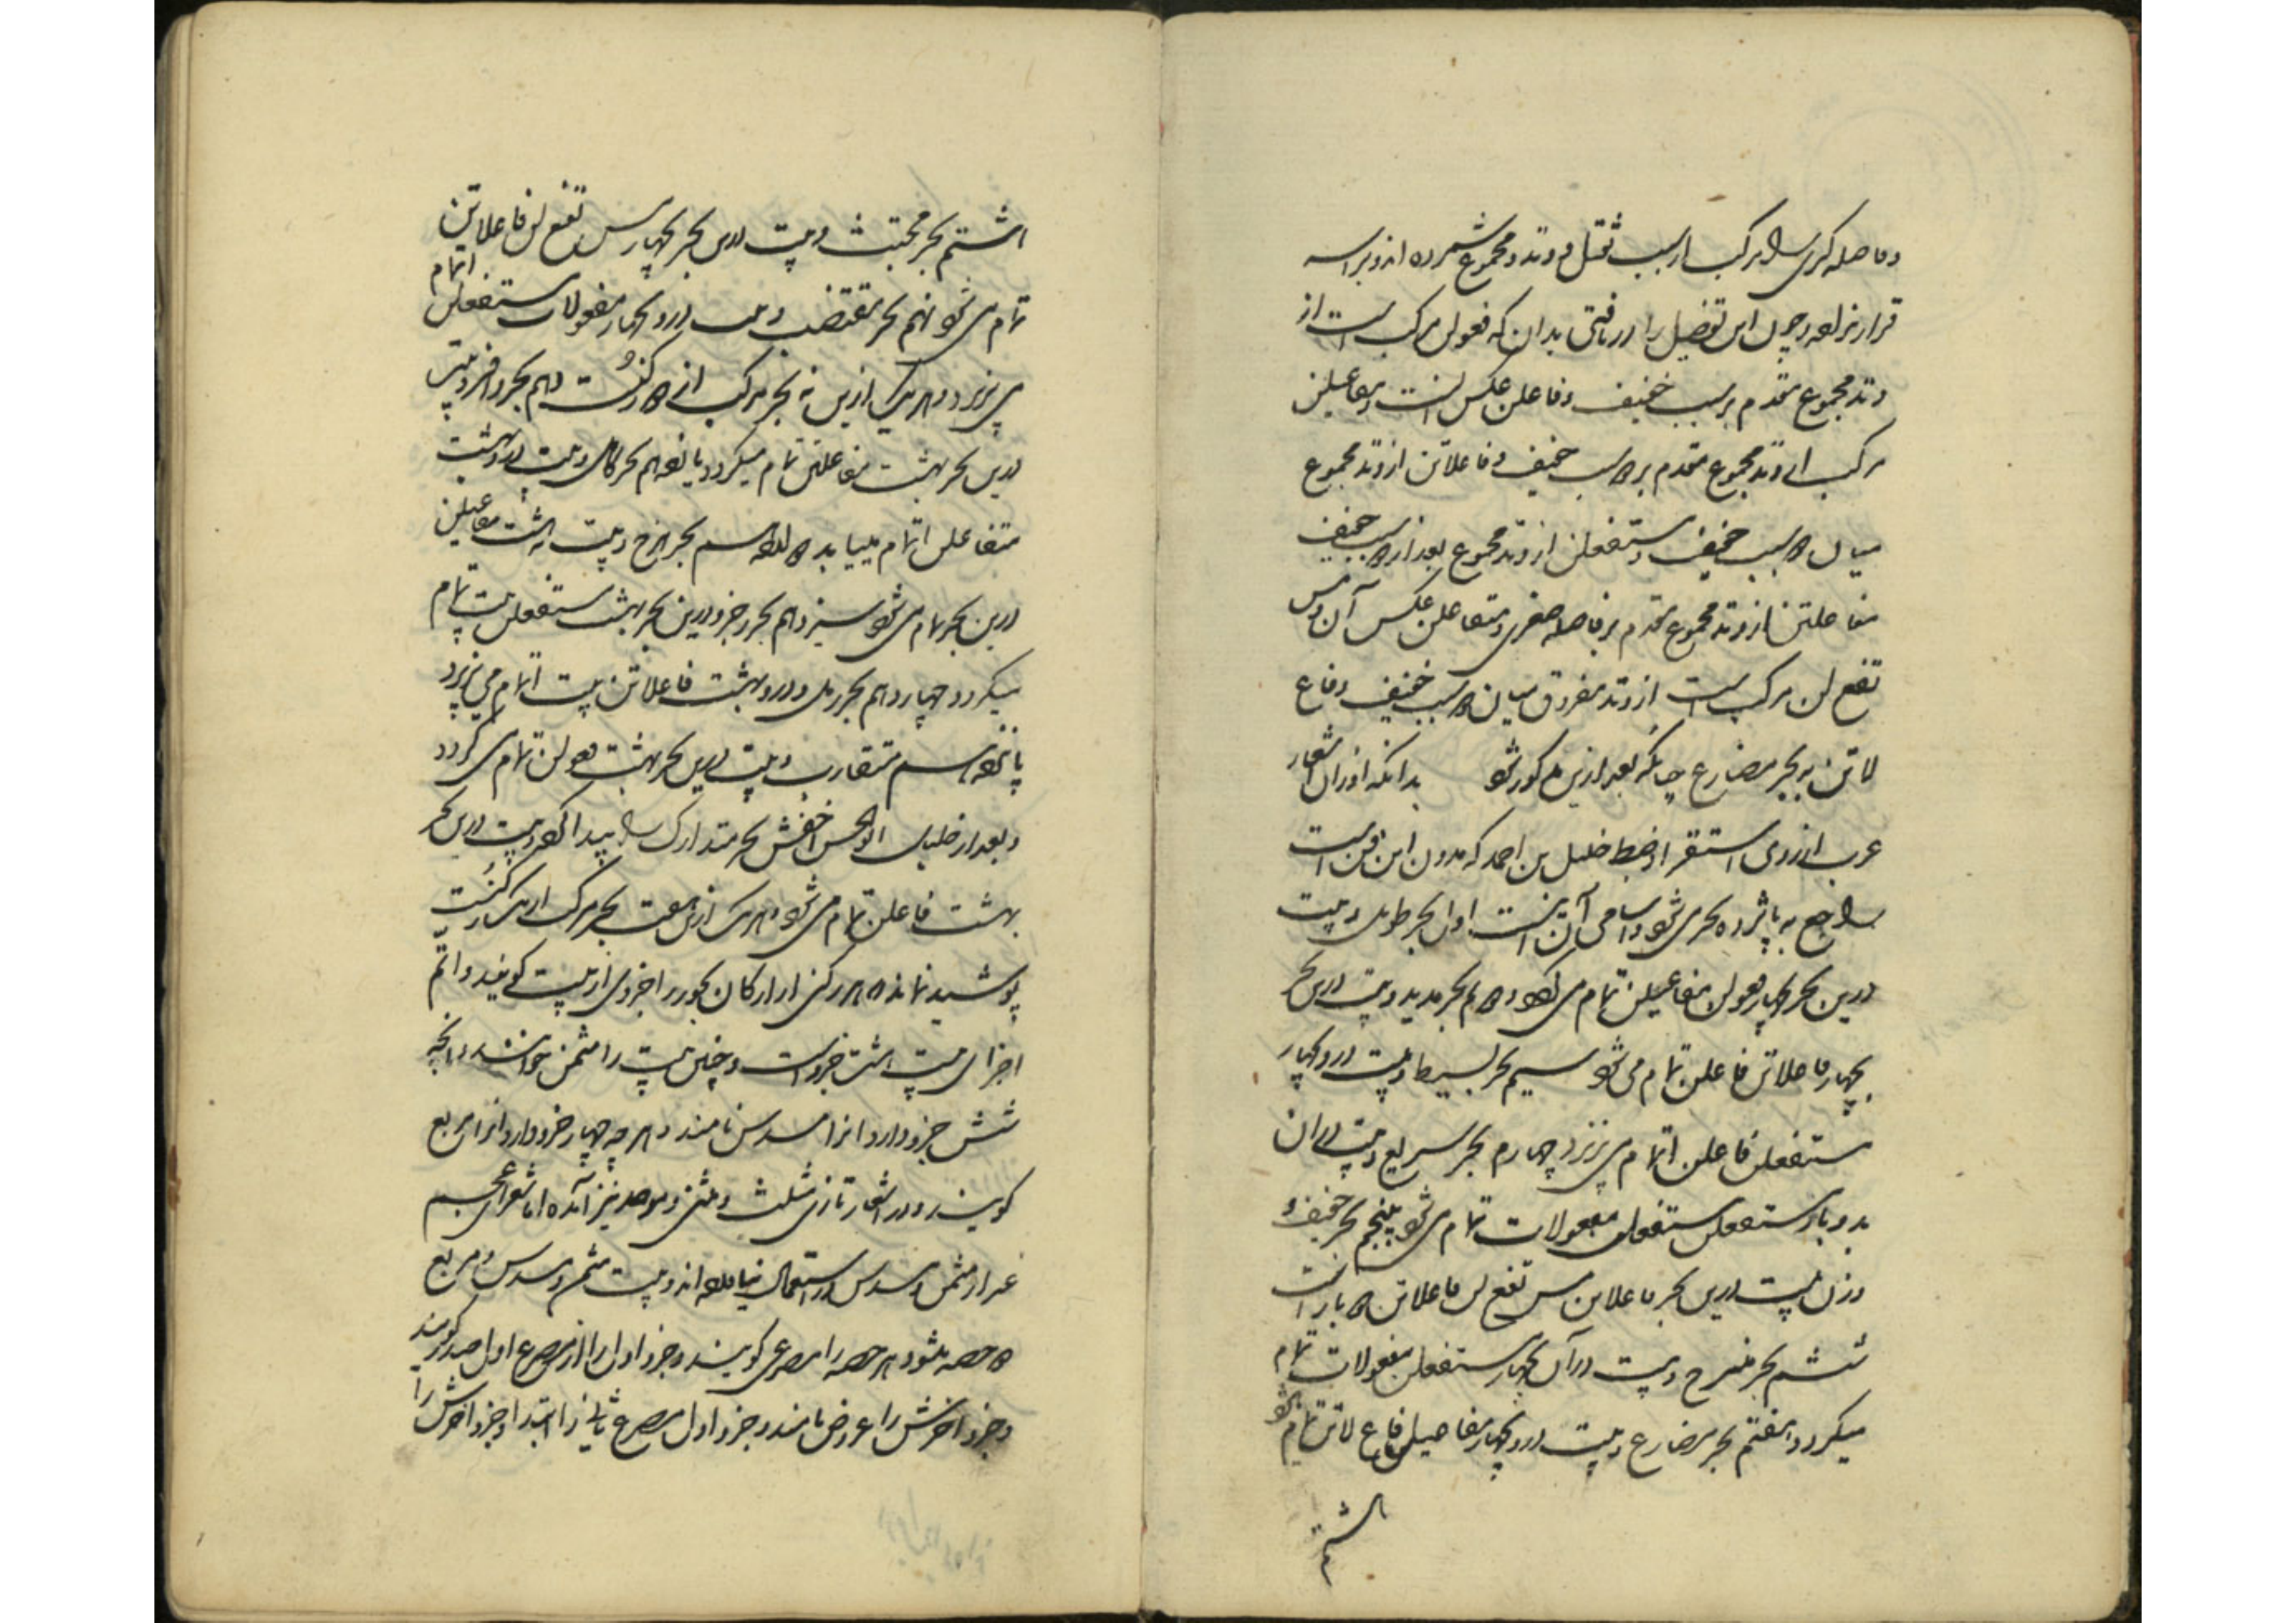 وفاصله کبری را مرکب از سبب ثقیل و وتد مجموع شمرده اند و براسه
قرار نداده و چون این تفصیل را دریافتی بدان که فعولن مرکب است از
وتد مجموع مقدم بر سبب خفیف و فاعلن عکس انست و مفاعیلن
مرکب از وتد مجموع مقدم بر دو سبب خفیف و فاعلاتن از وتد مجموع
میان دو سبب خفیف و مستفعلن از وتد مجموع بعد از دو سبب خفیف
مفاعلتن از وتد مجموع مقدم بر فاصله صغری و متفاعلن عکس آن و مس
تفع لن مرکب است از وتد مفروق میان دو سبب خفیف و فاع
لاتن به بحر مضارع چنانکه بعد ازین مذکور شود بدانکه اوزان اشعار
عرب از روی استقرا و ضبط خلیل بن احمد که مدون این فن است
راجع به پانزده بحر می شود و اسامی آن اینست اول بحر طویل و بیت
درین بحر بچهار فعولن مفاعیلن تمام می شود دوم بحر مدید و بیت درین بحر
بچهار فاعلاتن فاعلن تمام می شود سیم بحر بسیط و بیت درو بچهار
مستفعلن فاعلن اتمام می پذیرد چهارم بحر سریع و بیت دران
بدو بار مستفعلن مستفعلن مفعولات تمام می شود پنجم بحر خفیف و
وزن بیت درین بحر فاعلاتن مس تفع لن فاعلاتن دو بار است
ششم بحر منسرح و بیت در آن بچهار مستفعلن مفعولات تمام
میکردد هفتم بحر مضارع و بیت درو بچهار مفاعیلن فاع لاتن تمام شود
هشتم
هشتم بحر مجتث و بیت درین بحر بچهار مس تفع لن فاعلاتن
تمام می شود نهم بحر مقتضب و بیت درو بچهار مفعولات مستفعلن اتمام
می پذیرد و هر یک ازین نه بحر مرکب از دو رکنست دهم بحر وافر و بیت
درین بحر بهشت مفاعلتن تمام میکردد یازدهم بحر کامل و بیت درو بهشت
متفاعلن اتمام مییابد دوازدهم بحر هزج و بیت به هشت مفاعیلن
درین بحر تمام می شود سیزدهم بحر رجز و درین بحر بهشت مستفعلن بیت تمام
میکردد چهاردهم بحر رمل و درو بهشت فاعلاتن بیت اتمام می پذیرد
پانزدهم متقارب و بیت درین بحر بهشت فعولن تمام می کردد
و بعد از خلیل ابو الحسن اخفش بحر متدارک را پیدا کرد و بیت درین بحر
بهشت فاعلن تمام می شود و هر یک ازین هفت بحر مرکب از یک رکنست
پوشیده نماند که هر رکنی از ارکان بحور را جزوی از بیت کویند و اتم
اجزای بیت هشت جزو است و چنین بیت را مثمن خوانند و انچه
شش جزو دارد انرا مسدس نامند و هر چه چهار جزو دارد انرا مربع
کویند و در اشعار تازی مثلث و مثنی و موحد نیز آمده اما شعرای عجم
غیر از مثمن و مسدس در استعمال نیاورده اند و بیت مثمن و مسدس و مربع
دو حصه میشود هر حصه را مصرعی کویند و جزو اول را از مصرع اول صدر کویند
و جزو اخرش را عروض نامند و جزو اول مصرع ثانی را ابتدا و جزو اخرش را